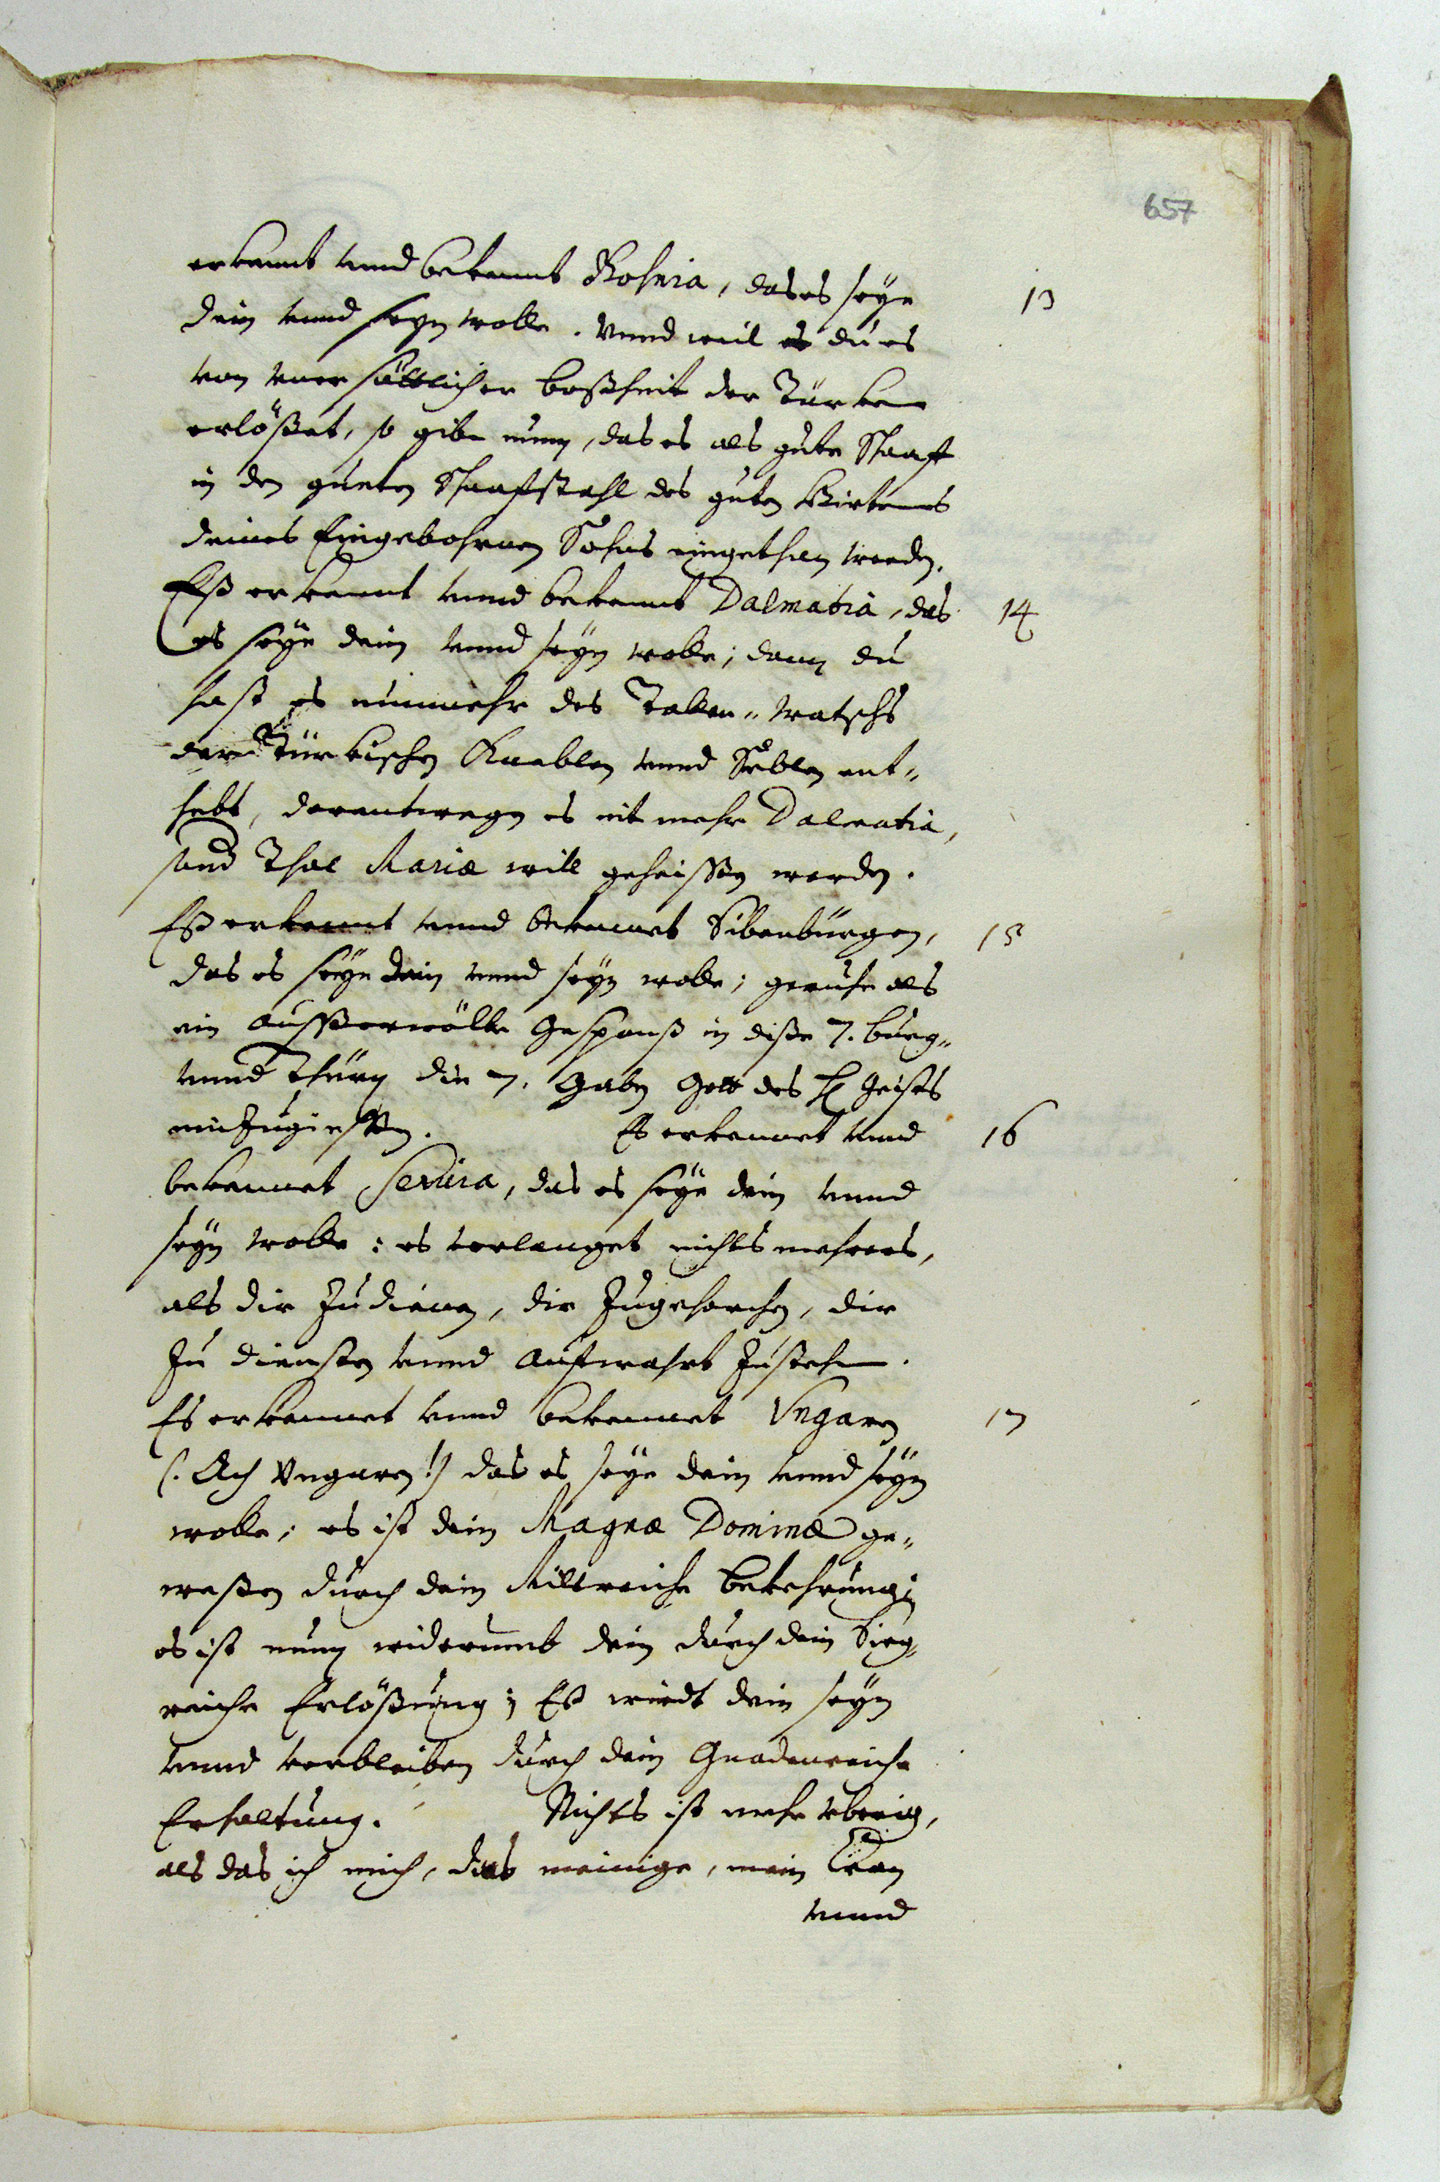 657
erkennt vnnd bekennt Bosnia, das es seye 13
dein vnnd seyn wolle. Vnnd weil du es
von vnersättlicher boßheit der Türken
erlößet, so gibe nun, das es als gute Schaaff
in den gueten Schaafstahl des guten Hirtens
deines Eingebohrnen Sohns eingethan werden.
Eß erkennt vnnd bekennt Dalmatia, das 14
es seye dein vnnd seyn wolle; dann du
hast es nunmehr des watschs
der Türkischen vnnd Säblen ent-
hebt, derentwegen es nit mehr Dalmatia,
sond Thal Mariæ will geheissen werden.
Eß erkennt vnnd bekennet Sibenbürgen, 15
das es seye dein vnnd seyn wolle; geruhe als
ein ausserwölte Gesponß in dise 7. burg-
vnnd Thürn die 7. Gaben Gott des H Geists
einzugiessen. Es erkennet vnnd 16
bekennet Seruia, das es seye dein vnnd
seyn wolle: es verlanget nichts mehrers,
als dir zu dienen, dir zugehorchen, dir
zu diensten vnnd aufwahrt zustehen.
Es erkennet vnnd bekennet Vngaren 17
(. Ach Vngaren!) das es seye dein vnnd seyn
wolle; es ist dein Magnæ Dominæ ge-
weßen durch dein Miltreiche bekehrung;
es ist nun widerumb dein durch dein Sieg-
reiche Erlößung; Eß würdt dein seyn
vnnd verbleiben durch dein Gnadenreiche
Erhaltung. Nichts ist mehr vberig,
als das ich mich, das meinige, mein Cron
vnnd